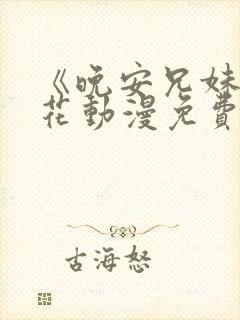 《晚安兄妹
花動漫免費
古海怒